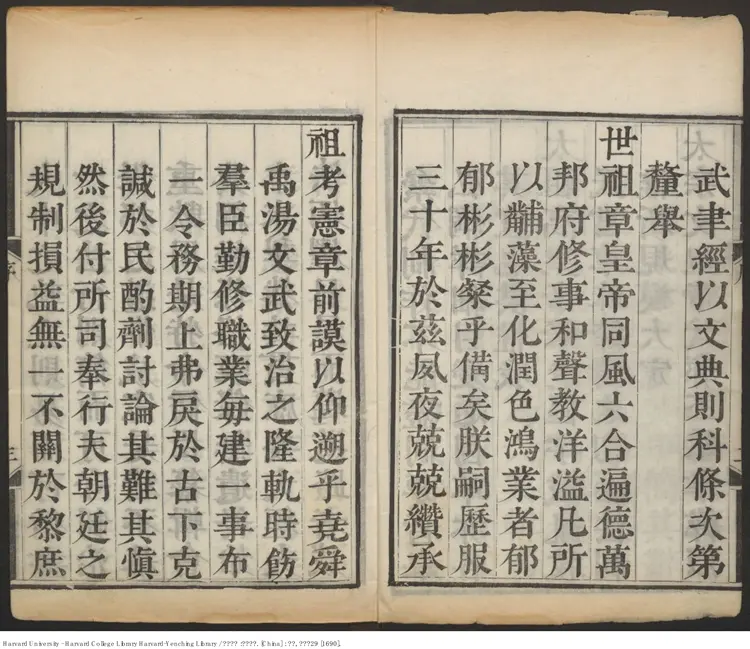 武聿經以文典則科條次第
釐舉
世祖章皇帝同風六合遍德萬
邦府修事和聲教洋溢凡所
以黼藻至化潤色鴻業者郁
郁彬彬粲乎備矣朕嗣歷服
三十年於茲夙夜兢兢纘承
祖考憲章前謨以仰遡乎堯舜
禹湯文武致治之隆軌時飭
羣臣勤修職業每建一事布
一令務期上弗戾於古下克
諴於民酌劑討論其難其慎
然後付所司奉行夫朝廷之
規制損益無一不關於黎庶
序
三
Harvard University - Harvard College Library Harvard-Yenching Library / ???? :????. [China] : ??, ???29 [1690].